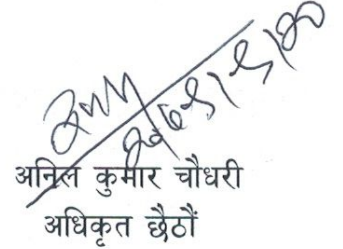 अनिल कुमार चौधरी
अधिकृत छैठौं